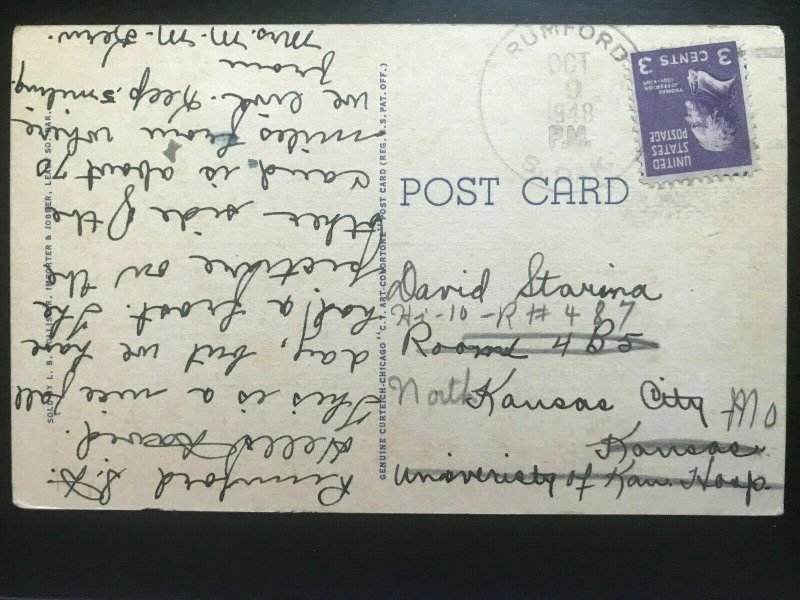 Rumford S.D.
Hello David.
This is a nice fall
day, but we have
had a frost. The
picture on the
other side of the
card is about 70
miles from where
we live. Keep Smiling.
from
Mrs. M. M.
SOLD BY L. B. IMPORTER & JOBBER, LEAD, SO. DAK.
GENUINE CURTEICH-CHICAGO "C.T. ART-COLORTONE" POST CARD (REG. U.S. PAT. OFF.)
RUMFORD
OCT
9
1948
P.M.
S. DAK.
UNITED
STATES
POSTAGE
THOMAS
JEFFERSON
3 CENTS 3
POST CARD
David Starina
-10-R # 487
Room 4B5
North Kansas City Mo
Kansas
Univeristy of Kan. Hosp.